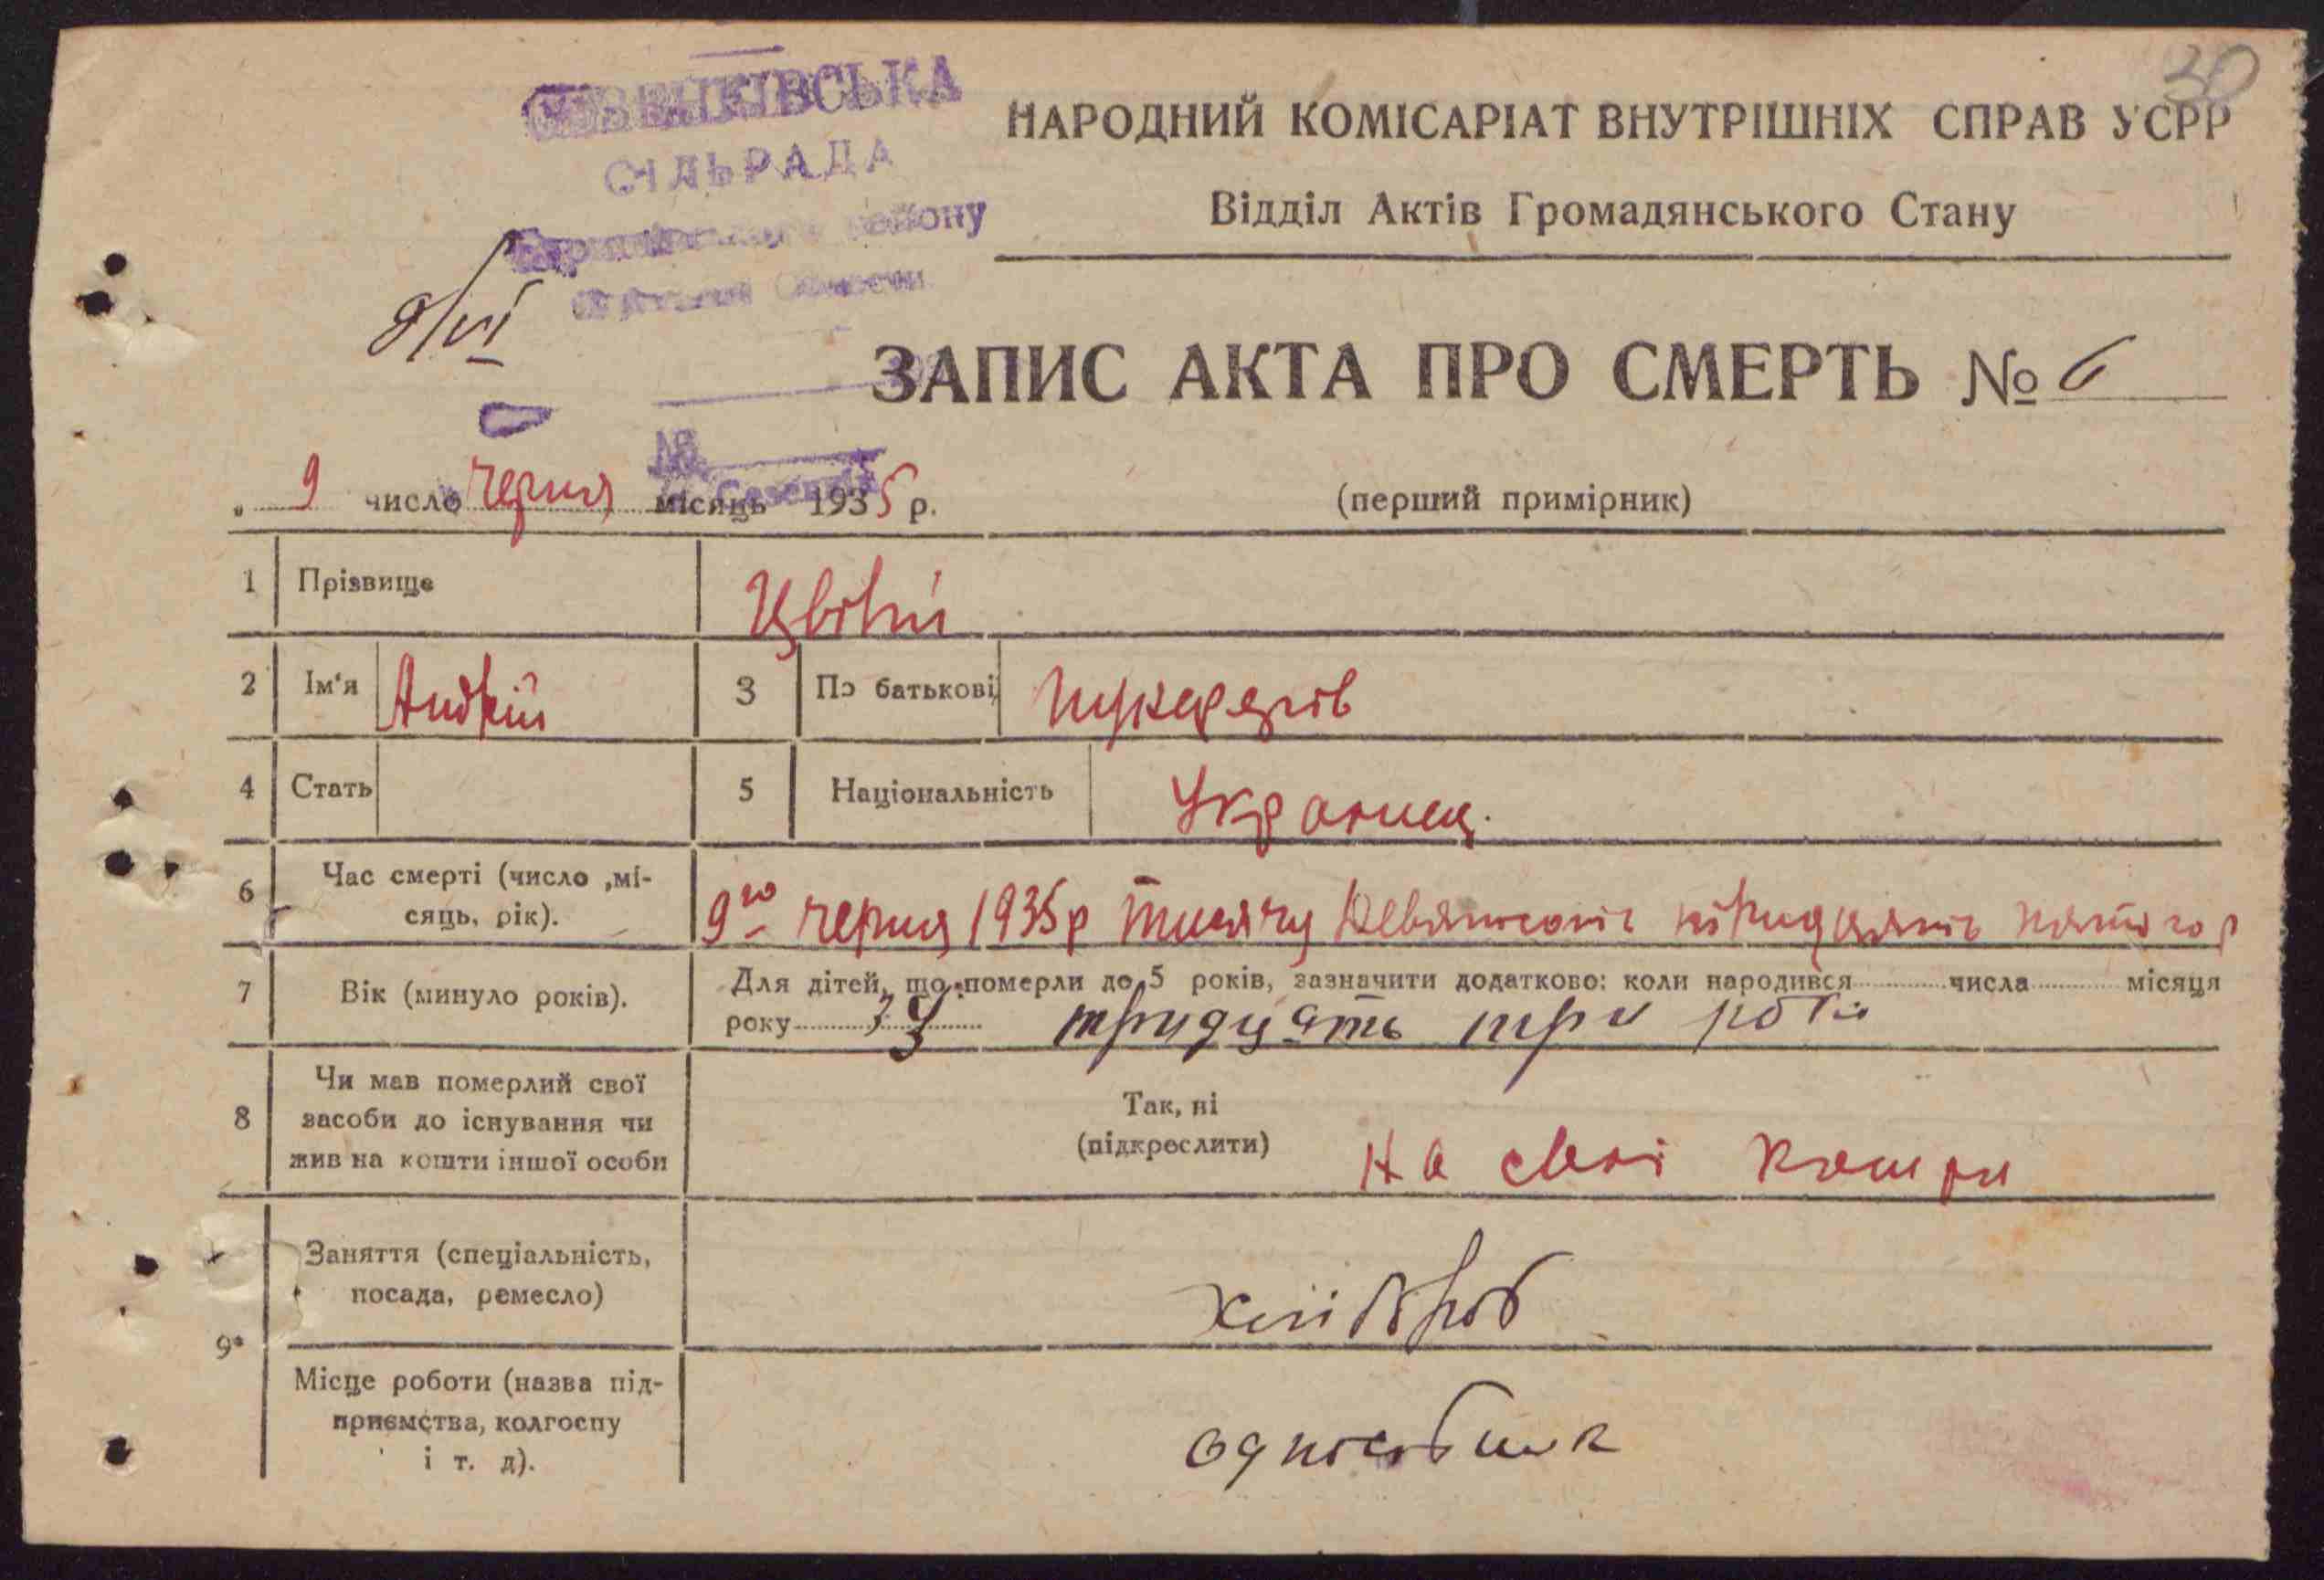 30
СІЛЬРАДА
району
НАРОДНИЙ КОМІСАРІАТ ВНУТРІШНІХ СПРАВ УСРР
Відділ Актів Громадянського Стану
9/VI
ЗАПИС АКТА ПРО СМЕРТЬ № 6
№
„ 9 число черня місяць 1935 р.
(перший примірник)
1 Прізвище Цвітій
2 Ім'я Андрій 3 По батькові
4 Стать 5 Національність Украинец.
6 Час смерті (число ,мі-
сяць, рік).
9го черня 1935р тисячу девятсоть тридцять пятого р
7 Вік (минуло років).
Для дітей, що померли до 5 років, зазначити додатково: коли народився числа місяця
року 33 тридцять три роки
8 Чи мав померлий свої
засоби до існування чи
жив на кошти іншої особи
Так, ні
(підкреслити) на свої кошти
9 Заняття (спеціальність,
посада, ремесло)
хлібороб
Місце роботи (назва під-
приємства, колгоспу
і т. д).
одноосібник